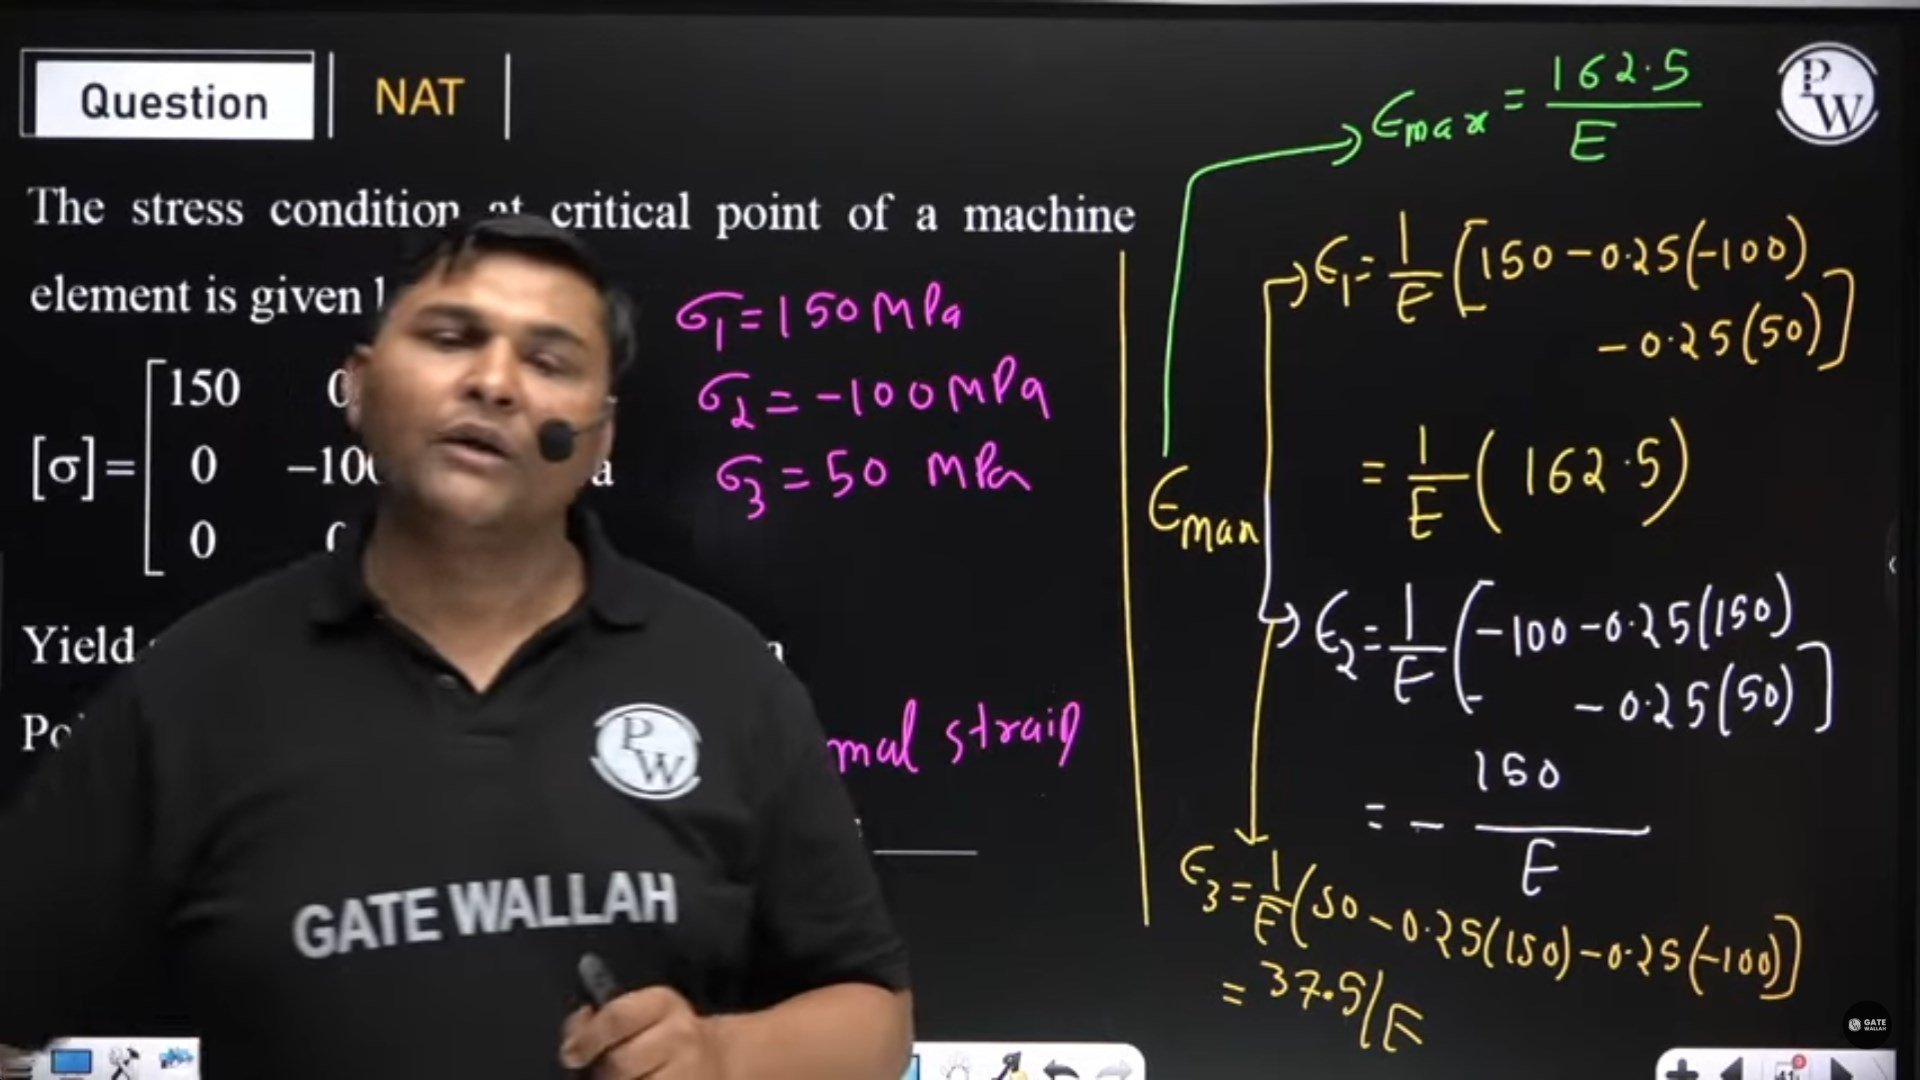 Question
NAT
The stress condition at critical point of a machine
element is given
[σ]=
150 0
0 -100
0
Yield
σ1 = 150 MPa
σ2 = -100 MPa
σ3 = 50 MPa
mal strain
Emax = 162.5/E
Emax
ϵ1 = 1/E [150 - 0.25(-100)
- 0.25(50)]
= 1/E (162.5)
ϵ2 = 1/E [-100 - 0.25(150)
- 0.25(50)]
= - 150/E
ϵ3 = 1/E (50 - 0.25(150) - 0.25(-100)]
= 37.5/E
PW
PW
GATE WALLAH
GATE
WALLAH